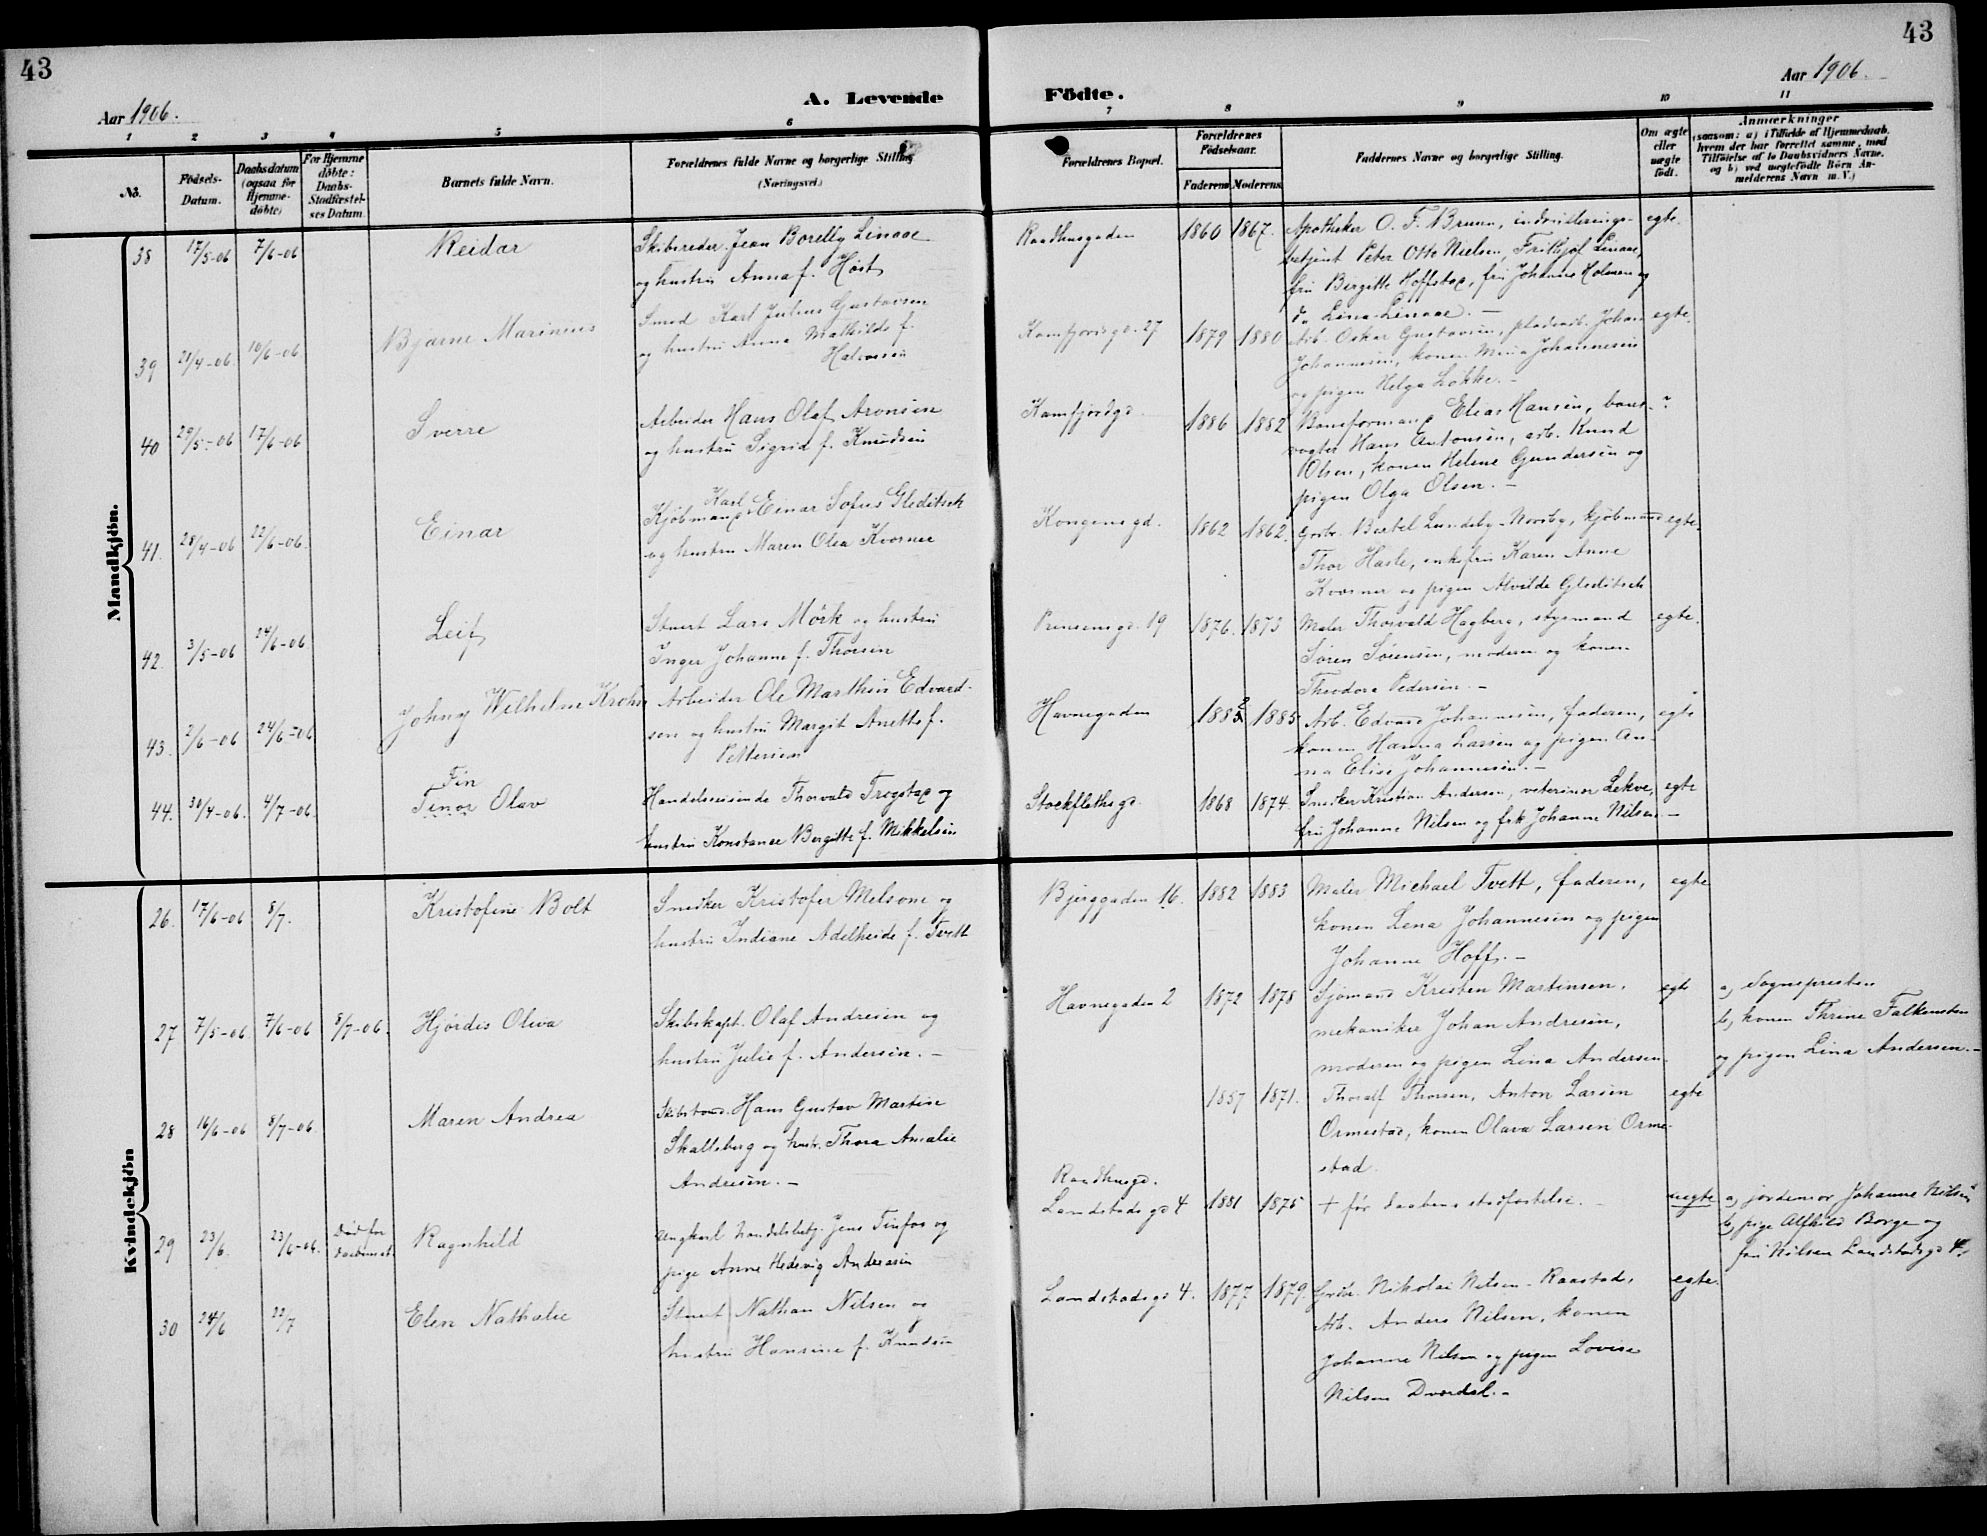 43
43
Aar 1906.
A. Levende
Födte.
Aar 1906.
1 2 3 4 5 6 7 8 9 10 11
No.
Födsels-Datum.
Daabsdatum (ogsaa for Hjemme-döbte)
For Hjemme döbte: Daabs-Stadfæstel-ses Datum
Barnets fulde Navn.
Forældrenes fulde Navne og borgerlige Stilling
(Næringsvei.)
Forældrenes Bopæl.
Forældrenes Födselsaar.
Faderens Moderens
Faddernes Navne og borgerlige Stilling.
Om ægte eller uægte födt.
Anmærkninger
(saasom: a) i Tilfælde af Hjemmedaab, hvem der har forrettet samme, med Tilföielse af to Daabsvidners Navne. og b) ved uægtefödte Börn An-melderens Navn m. V.)
Mandkjön.
38 17/5-06 7/6-06 Reidar
Skibsreder Jean Borelly Linaae
og hustru Anna f. Höst
Raadhusgaden 1860 1867.
Apotheker O. F. Bruun, indrullerings-
betjent Peter Otto Nielsen, Frithjof Linaae,
fru Birgitte Hoffstad, fru Johanne Holmen og
do Lina Linaae. –
egte.
39 21/4-06. 10/6-06 Bjarne Marinius
Smed Karl Julius Gustavsen
og hustru Anna Mathilde f.
Halvorsen
Kamfjordgd. 27 1879 1880
Arb. Oskar Gustavsen, pladearb. Johan
Johannesen, konen Mina Johannesen
og pigen Helga Løkke. –
egte.
40 29/5-06 17/6-06 Sverre
Arbeider Hans Olaf Aronsen
og hustru Sigrid f. Knudsen
Kamfjordgd. 1886 1882
Baneformand Elias Hansen, bane-
vogter Hans Antonsen, arb. Knud
Olsen, konen Helene Gundersen og
pigen Olga Olsen. –
41. 28/4-06 22/6-06. Einar
Karl
Kjöbmand Einar Sofus Gleditsch
og hustru Maren Olea Kværner
Kongensgd. 1862 1862.
Gbr. Bertel Lundeby-Noreby, kjöbmand
Thor Hasle, enkefru Karen Anne
Kværner og pigen Alvilde Gleditsch
egte.
42. 3/5-06 24/6-06 Leif
Stuert Lars Mörk og hustru
Inger Johanne f. Thorsen
Prinsensgd. 19 1876. 1873
Maler Thorvald Hagberg, styrmand
Sören Sörensen, moderen og konen
Theodora Pedersen. –
egte.
43. 2/6-06 24/6-06 Johny Wilhelm Krohn
Arbeider Ole Marthin Edvard-
sen og hustru Margit Anette f.
Pettersen
Havnegaden 1882 1885
Arb. Edvard Johannesen, faderen,
konen Hanna Larsen og pigen An-
na Elise Johannesen. –
egte
44. 30/4-06. 4/7-06. Fin
Finor Olav
Handelsreisende Thorvald Trogstad og
hustru Konstance Bergitte f. Mikkelsen
Stockflethsgd. 1868 1874.
Snedker Kristian Andersen, veterinær Lekve,
fru Johanne Nilsen og frk Johanne Nilsen –
egte
Kvindekjön
26. 17/6-06 8/7. Kristofine Bolt
Snedker Kristofer Melsom og
hustru Indiane Adelheide f. Tvett
Bjerggaden 16. 1882 1883
Maler Michael Tvett, faderen,
konen Lena Johannesen og pigen
Johanne Hoff. –
egte
27 7/5-06. 7/6-06 8/7-06. Hjördis Oliva
Skibskapt. Olaf Andresen og
hustru Julie f. Andersen. –
Havnegaden 2 1872 1878
Sjömand Kristen Martinsen,
mekaniker Johan Andresen,
moderen og pigen Lina Andersen.
egte
a, Sognepresten
b, konen Thrine Falkensten
og pigen Lina Andersen. –
28 16/6-06 8/7-06. Maren Andrea
Skibstømd. Hans Gustav Martin
Skallsberg og hust. Thora Amalie
Andresen. –
Raadhusgd. 1857 1871.
Thoralf Thorsen, Anton Larsen
Ormestad, konen Olava Larsen Orme-
stad.
egte
29 23/6. 23/6-06. Död før
Ragnhild
Ungkarl handelsbetj. Jens Tinfos og
pige Anne Hedevig Andersen
Landstadsgd 4 1881 1875
+ før daabens stadfæstelse. –
uegte
a, jordemor Johanne Nilsen
b, pige Alfhild Borge og
fru Nilsen Landstadsgd 4.
30 24/6 22/7 Elen Nathalie
Stuert Nathan Nilsen og
hustru Hansine f. Knudsen
Landstadsgd 4. 1877 1879.
Gbr. Nikolai Nilsen-Raastad,
Arb. Anders Nilsen, konen
Johanne Nilsen og pigen Lovise
Nilsen Dverdal. –
egte.